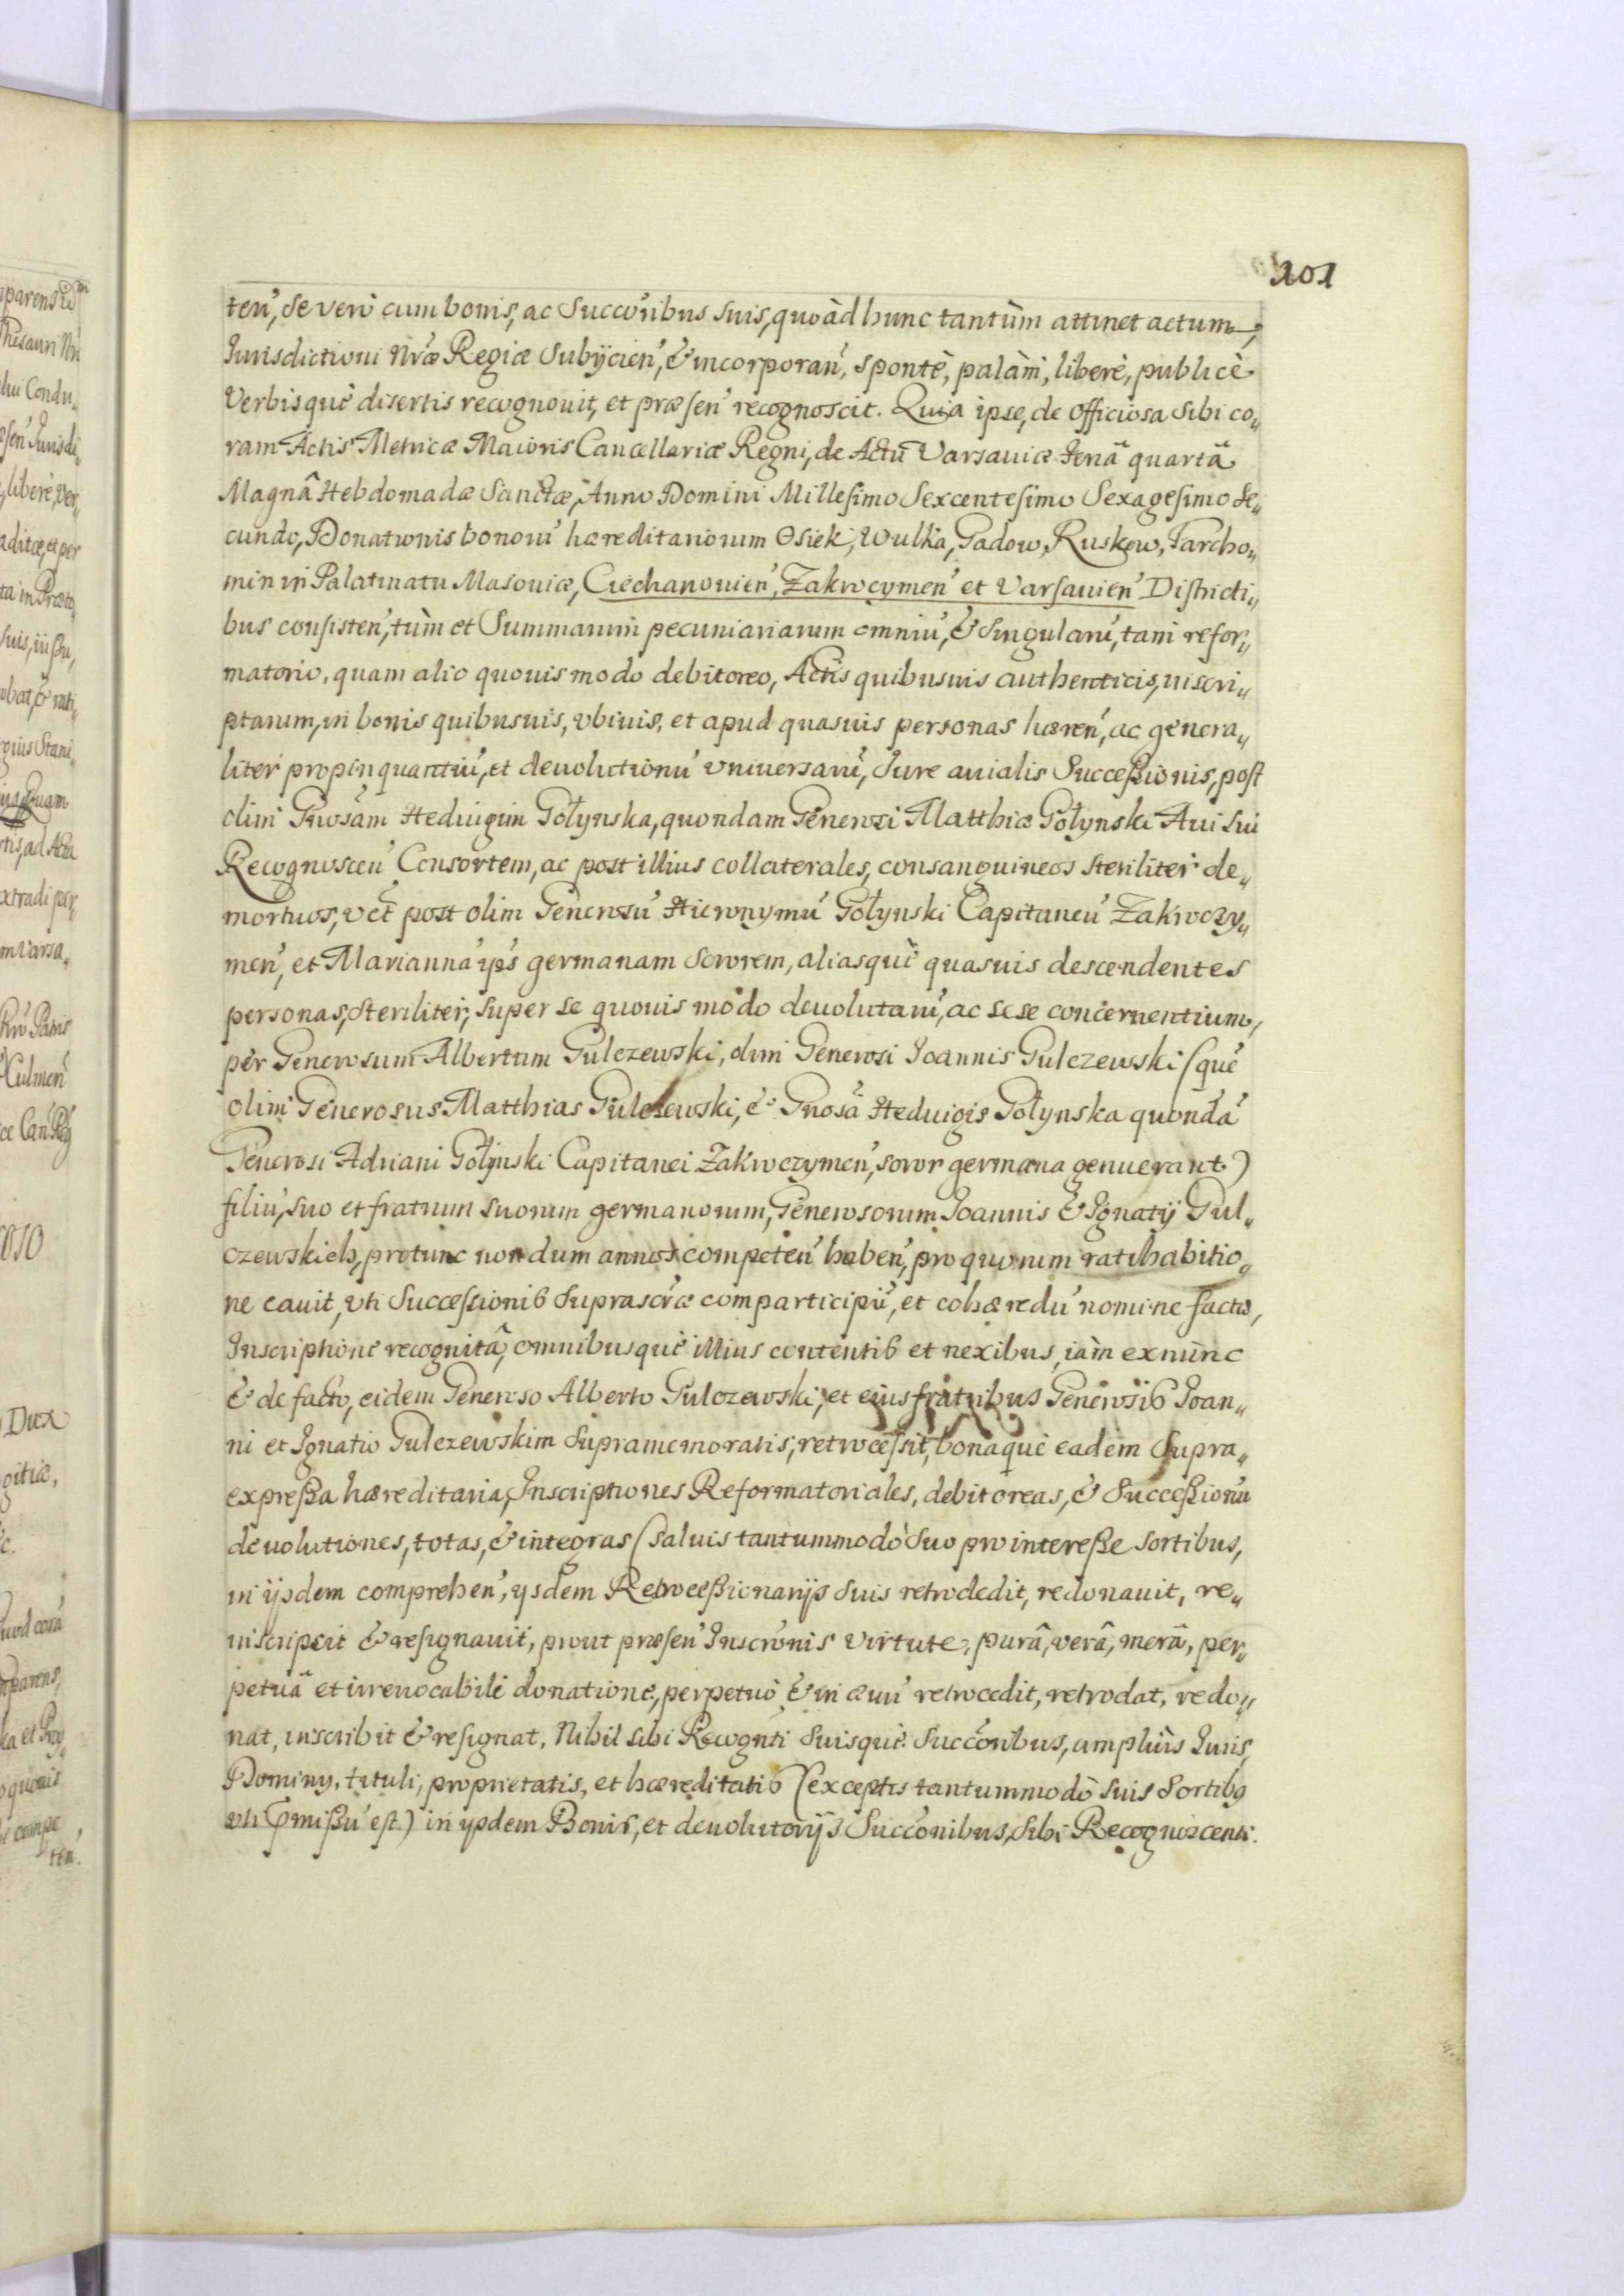 101
ten̄, se verò cum bonis, ac Succōribus suis, quoàd hunc tantùm attinet actum,
Jurisdictioni Nr̄æ Regiæ Subijcien̄, & incorporan̄, spontè, palàm, liberè, publicè
Verbisquè disertis recognovit, et præsen̄ recognoscit. Quia ipse, de officiosa sibi co„
ram Actis Metricæ Maioris Cancellariæ Regni, de Actū Varsaviæ Feriâ quartâ
Magnâ Hebdomadæ Sanctæ, Anno Domini Millesimo Sexcentesimo Sexagesimo Se„
cundo, Donationis bonorū hæreditariorum Osiek, Wulka, Gadow, Ruskow, Tarcho„
min in Palatinatu Masoviæ, Ciechanovien̄, Zakrocymen̄ et Varsavien̄ Districti„
bus consisten̄, tùm et Summarum pecuniariarum omniū, & singularū, tam refor„
matorio, quam alio quovis modo debitoreo, Actis quibusuis authenticis, inscri„
ptarum, in bonis quibusuis, vbiuis, et apud quasuis personas hæren̄, ac genera„
liter propinquantiū, et devolutionū vniversarū, Jure avialis Successionis, post
olim Gn̄rosam Heduigim Gołynska, quondam Generosi Matthiæ Gołynski Aui sui
Recognoscen̄ Consortem, ac post illius collaterales, consanguineos steriliter de„
mortuos, vet̄ post olim Generosū Hieronymū Gołynski Capitaneū Zakroczy„
men̄, et Mariannā ip̄s germanam Sororem, aliasquè quasuis descendentes
personas, steriliter, super se quouis modo devolutarū, ac sese concernentium,
per Generosum Albertum Gulczewski, olim Generosi Joannis Gulczewski (quē
olim Generosus Matthias Gulczewski, & Gn̄osā Heduigis Gołynska quondā
Generosi Adriani Gołynski Capitanei Zakroczymen̄, soror germana genuerant)
filiū, suo et fratrum suorum germanorum, Generosorum Joannis & Ignatij Gul„
czewskich, protunc nondum annos competen̄ haben̄, pro quorum ratihabitio„
ne cauit, vti Successionis Suprascr̄æ comparticipū, et cohæredū nomine facta,
Inscriptione recognitâ, omnibusquè illius contentis et nexibus, iàm exnùnc
& de facto, eidem Generoso Alberto Gulczewski, et eius fratribus Generosis Joan„
ni et Ignatio Gulczewskim supramemoratis, retrocessit, bonaquè eadem Supra„
expressa hæreditaria, Inscriptiones Reformatoriales, debitoreas, & Successionū
devolutiones, totas, & integras (saluis tantummodò suo pro interesse sortibus,
in ijsdem comprehen̄, ijsdem Retrocessionarijs suis retrodedit, redonauit, re„
inscripsit & resignauit, prout præsen̄ Inscrōnis virtute, purâ, verâ, merâ, per„
petuâ et irrevocabili donatione, perpetuò & in æuū retrocedit, retrodat, redo„
nat, inscribit & resignat, Nihil sibi Recogn̄ti suisquè Succōribus, ampliùs Juris,
Dominij, tituli, proprietatis, et hæreditatis (exceptis tantummodò suis sortibꝰ
vti p̄missū est) in ijsdem Bonis, et devolutorijs Succōnibus, sibi Recognoscenti